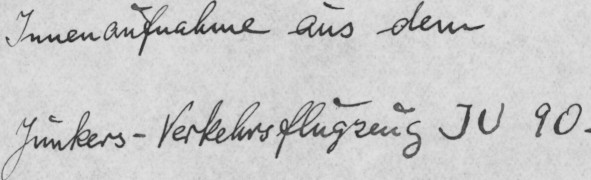 Innenaufnahme aus dem
Junkers-Verkehrsflugzeug JU 90.